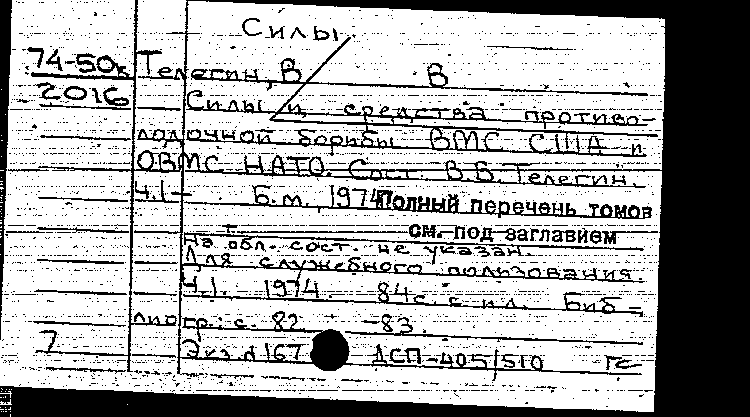 Силы
74-50к Телегин, В В
2016 Силы и средства противо-
лодочной борьбы ВМС США и
ОВМС НАТО. Сост. В.В. Телегин.
Ч.1- Б.м., 1974
Полный перечень томов
см. под заглавием
На обл. сост. не указан.
Для служебного пользования.
Ч.1. 1974. 84с. с ил. Биб-
лиогр.: с. 82-83.
7 Экз.№167 ДСП-405/510